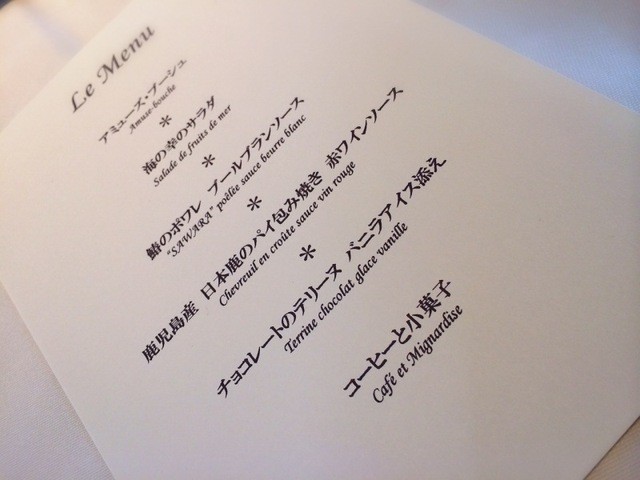 Le Menu
アミューズ・ブーシュ
Amuse-bouche
*
海の幸のサラダ
Salade de fruits de mer
*
鰆のポワレ ブールブランソース
"SAWARA" poêlée sauce beurre blanc
*
鹿児島産 日本鹿のパイ包み焼き 赤ワインソース
Chevreuil en croûte sauce vin rouge
*
チョコレートのテリーヌ バニラアイス添え
Terrine chocolat glace vanille
コーヒーと小菓子
Café et Mignardise